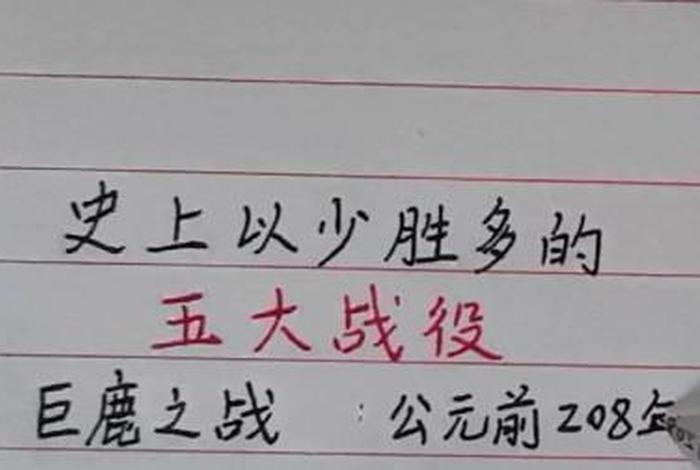 史上以少胜多的
五大战役
巨鹿之战 : 公元前208年